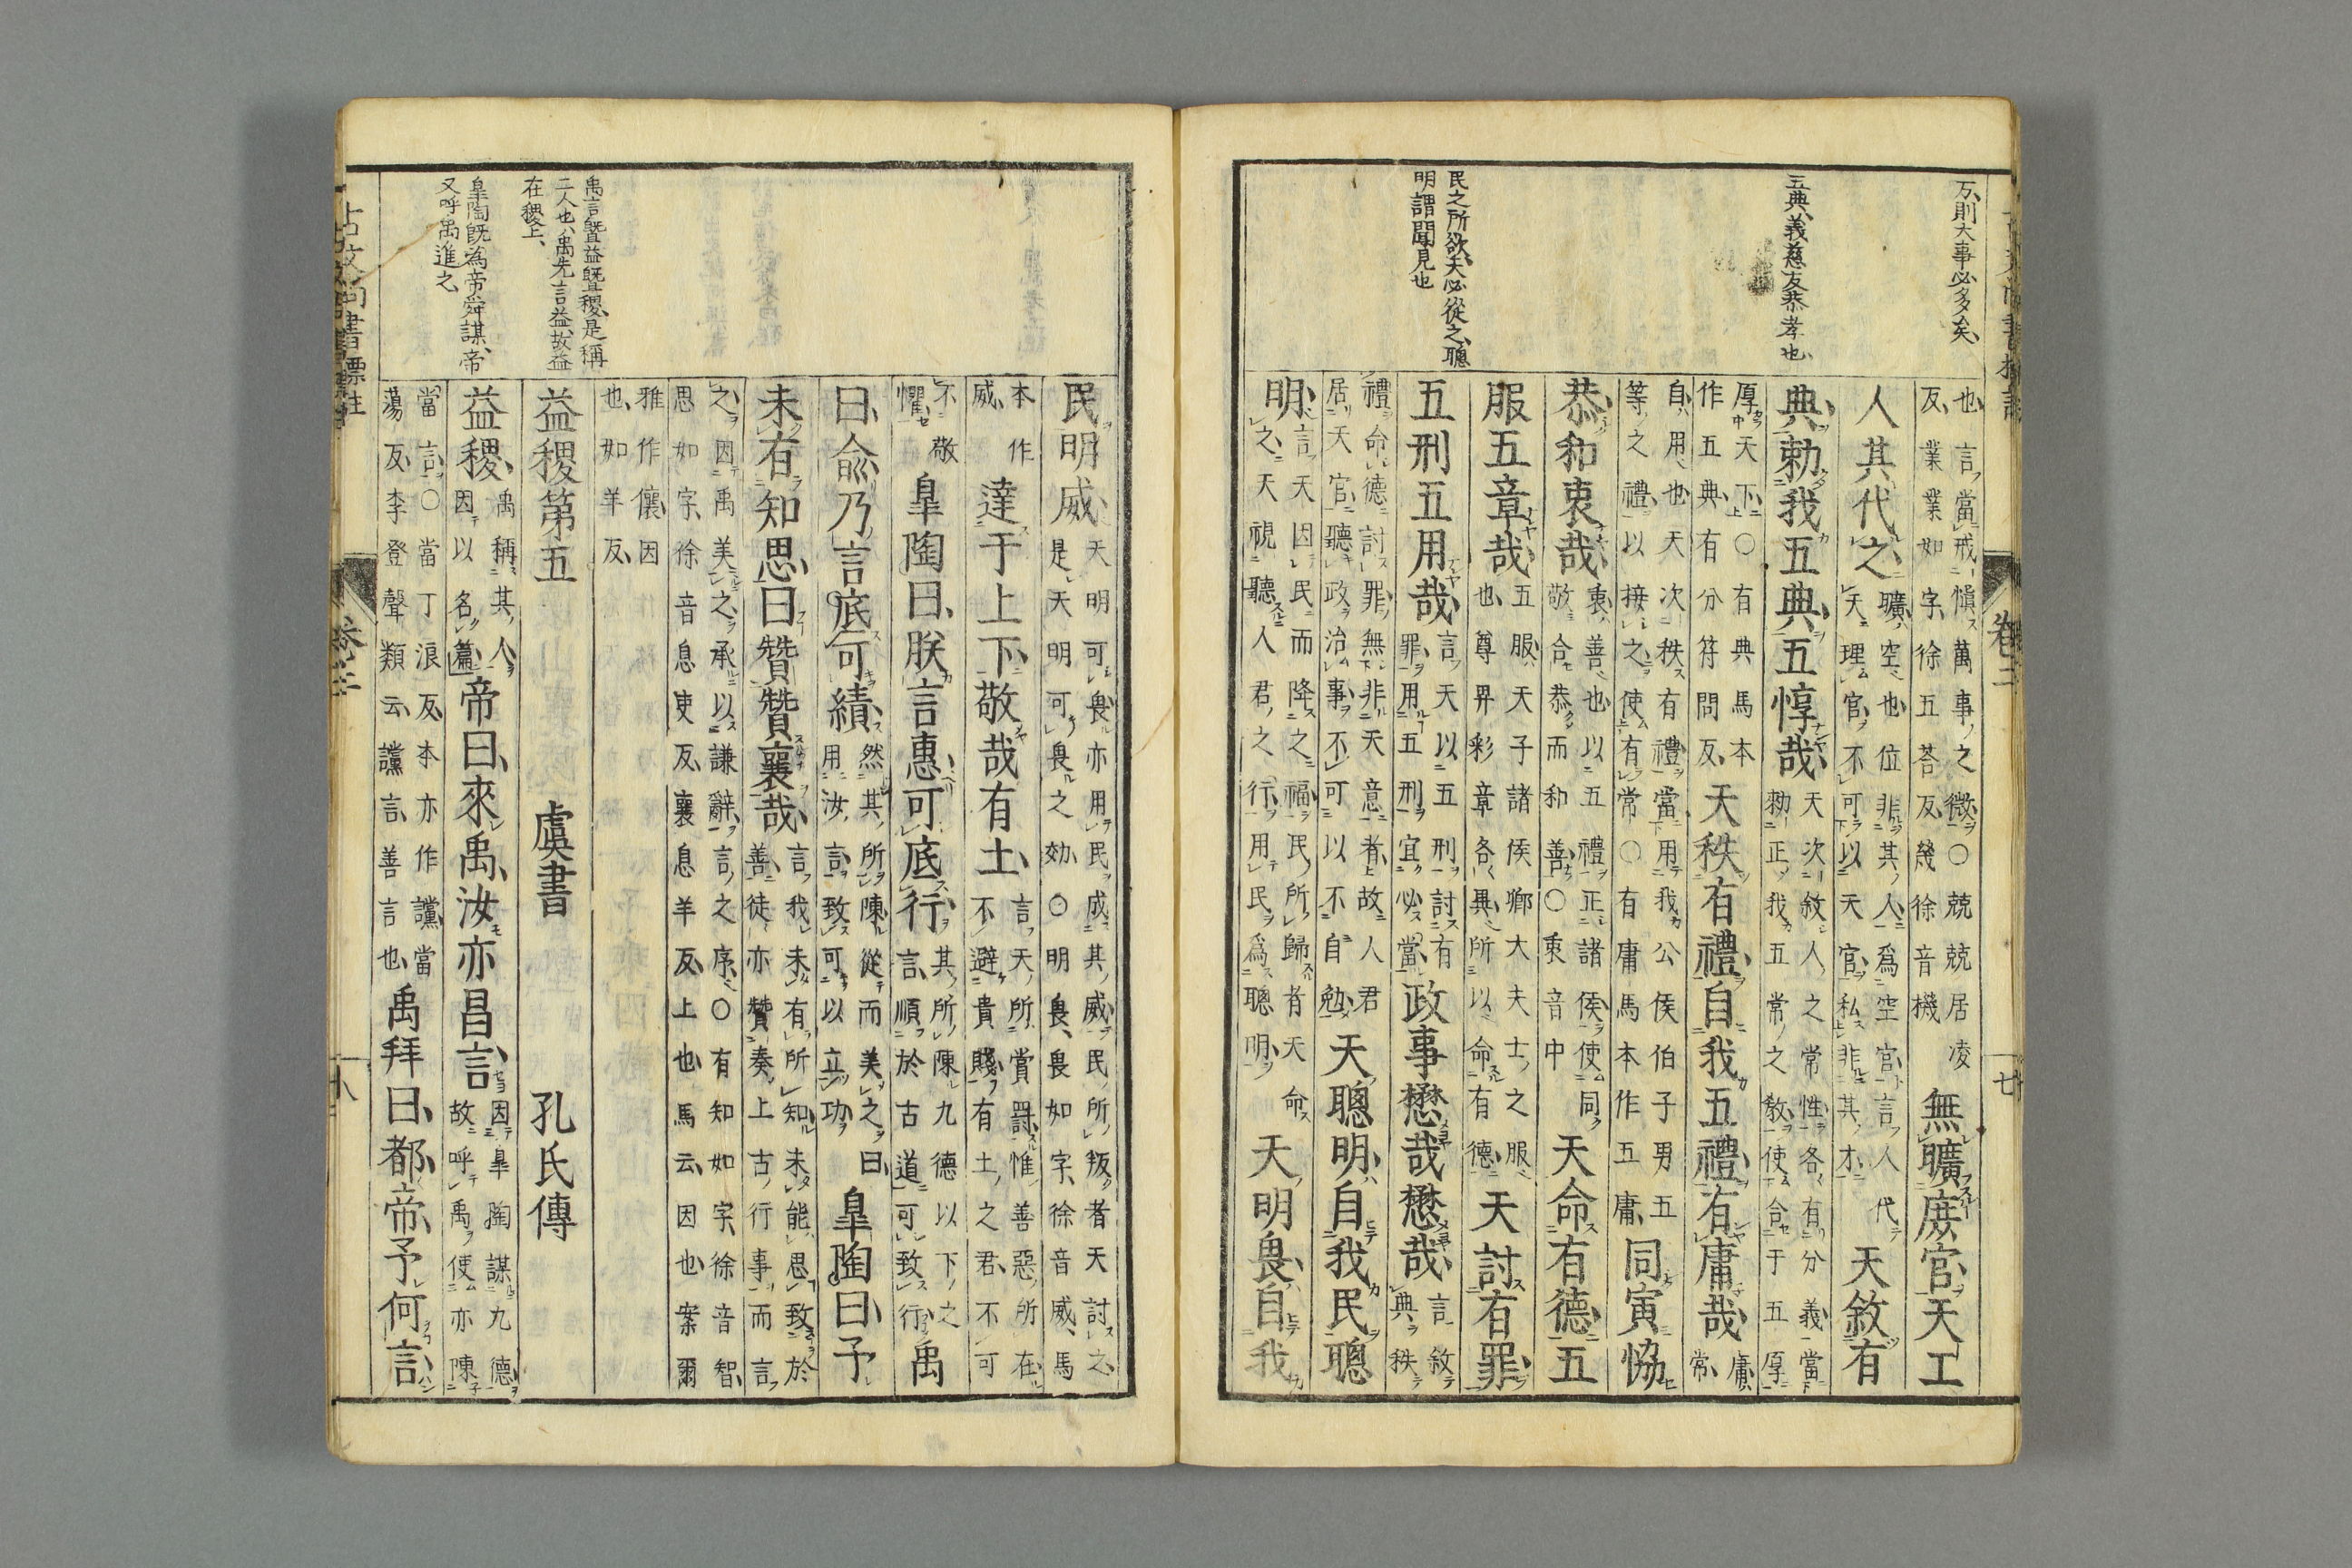 万、則大事必多矣、
五典、義慈友恭孝也、
民之所欲、天必從之、聰
明謂聞見也
也、言當戒愼萬事之微、○兢兢居凌
反、業業如字、徐五荅反、幾徐音機
無曠庶官、天工
人其代之、
曠、空也、位非其人爲空官、言人代
天理官、不可以天官私非其才、
天敘有
典、勅我五典、五惇哉、
天次敘人之常性、各有分義、當
勅正我五常之敎、使合于五厚、
厚天下、○有典馬本
作五典、有分符問反、
天秩有禮、自我五禮、有庸哉、
庸、
常、
自、用也、天次秩有禮、當用我公侯伯子男五
等之禮、以接之、使有常、○有庸馬本作五庸、
同寅恊
恭和衷哉、
衷、善也、以五禮正諸侯、使同
敬合恭而和善、○衷音中
天命有德、五
服五章哉、
五服、天子諸侯卿大夫士之服
也、尊卑彩章各異、所以命有德、
天討有罪、
五刑五用哉、
言天以五刑討有
罪、用五刑宜必當、
政事懋哉懋哉、
言敘
典秩
禮、命德、討罪、無非天意者、故人君
居天官、聽政治事、不可以不自勉、
天聰明、自我民聰
明、
言天因民而降之福、民所歸者天命
之、天視聽人君之行、用民爲聰明、
天明畏、自我
古文尚書標註
民明威、
天明可畏、亦用民成其威、民所叛者天討之、
是天明可畏之効、○明畏、畏如字、徐音威、馬
本作
威、
達于上下、敬哉有土、
言天所賞罰、惟善惡所在、
不避貴賤、有土之君、不可
不敬
懼、
皐陶曰、朕言惠、可底行、
其所陳九德以下之
言、順於古道、可致行、
禹
曰、兪、乃言底可績、
然其所陳、從而美之曰、
用汝言、致可以立功、
皐陶曰、予
未有知、思曰贊贊襄哉、
言我未有所知、未能思致於
善、徒亦贊奏上古行事而言
之、因禹美之、承以謙辭、言之序、○有知如字、徐音智、
思如字、徐音息吏反、襄息羊反、上也、馬云、因也、案爾
雅作儴、因
也、如羊反、
禹言曁益曁稷、是稱
二人也、禹先言益、故益
在稷上、
益稷第五 虞書 孔氏傳
皐陶既為帝舜謀、帝
又呼禹進之、
益稷、
禹稱其人、
因以名篇、
帝曰、來禹、汝亦昌言、
因皐陶謀九德、
故呼禹、使亦陳
當言、○當丁浪反、本亦作讜、當
蕩反、李登聲類云、讜言、善言也、
禹拜曰、都、帝、予何言、